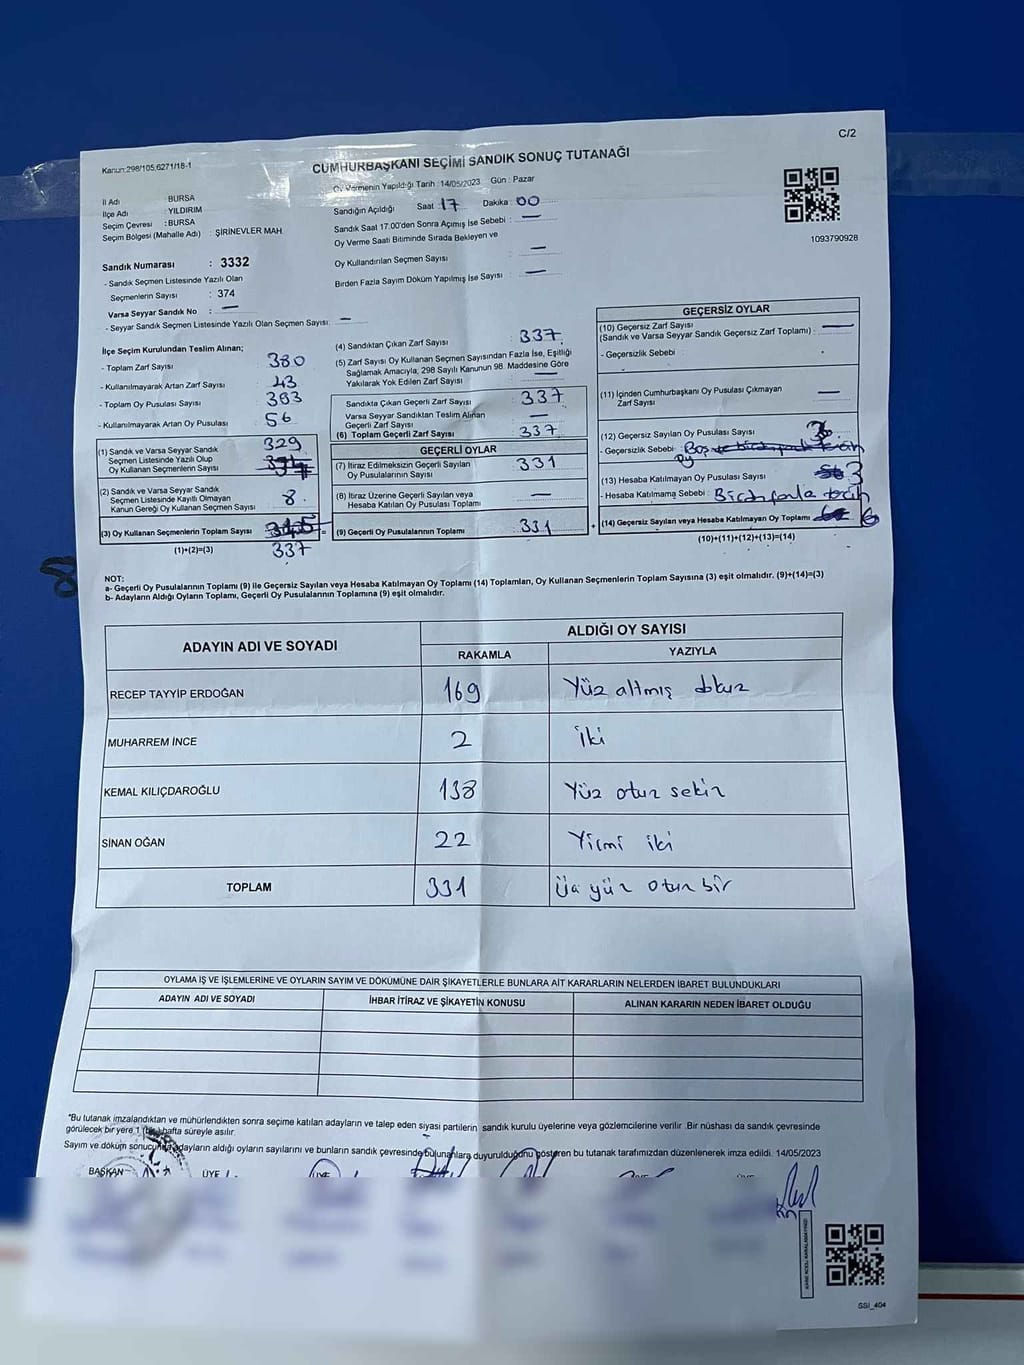 C/2
Kanun:298/105,6271/18-1
CUMHURBAŞKANI SEÇİMİ SANDIK SONUÇ TUTANAĞI
Oy Vermenin Yapıldığı Tarih :14/05/2023 Gün : Pazar
İl Adı : BURSA
İlçe Adı : YILDIRIM
Seçim Çevresi : BURSA
Seçim Bölgesi (Mahalle Adı) : ŞİRİNEVLER MAH.
Sandığın Açıldığı Saat : 17 Dakika : 00
Sandık Saat 17:00'den Sonra Açımış İse Sebebi : —
Oy Verme Saati Bitiminde Sırada Bekleyen ve
Oy Kullandırılan Seçmen Sayısı : —
Birden Fazla Sayım Döküm Yapılmış İse Sayısı : —
1093790928
Sandık Numarası : 3332
- Sandık Seçmen Listesinde Yazılı Olan
Seçmenlerin Sayısı : 374
Varsa Seyyar Sandık No : —
- Seyyar Sandık Seçmen Listesinde Yazılı Olan Seçmen Sayısı: —
İlçe Seçim Kurulundan Teslim Alınan;
- Toplam Zarf Sayısı 380
- Kullanılmayarak Artan Zarf Sayısı 43
- Toplam Oy Pusulası Sayısı 393
- Kullanılmayarak Artan Oy Pusulası 56
(1) Sandık ve Varsa Seyyar Sandık
Seçmen Listesinde Yazılı Olup
Oy Kullanan Seçmenlerin Sayısı 329
(2) Sandık ve Varsa Seyyar Sandık
Seçmen Listesinde Kayıtlı Olmayan
Kanun Gereği Oy Kullanan Seçmen Sayısı 8
(3) Oy Kullanan Seçmenlerin Toplam Sayısı
(1)+(2)=(3) 337
(4) Sandıktan Çıkan Zarf Sayısı : 337
(5) Zarf Sayısı Oy Kullanan Seçmen Sayısından Fazla İse, Eşitliği
Sağlamak Amacıyla, 298 Sayılı Kanunun 98. Maddesine Göre
Yakılarak Yok Edilen Zarf Sayısı —
Sandıkta Çıkan Geçerli Zarf Sayısı 337
Varsa Seyyar Sandıktan Teslim Alınan
Geçerli Zarf Sayısı —
(6) Toplam Geçerli Zarf Sayısı 337
GEÇERLİ OYLAR
(7) İtiraz Edilmeksizin Geçerli Sayılan
Oy Pusulalarının Sayısı 331
(8) İtiraz Üzerine Geçerli Sayılan veya
Hesaba Katılan Oy Pusulası Toplamı —
(9) Geçerli Oy Pusulalarının Toplamı 331
GEÇERSİZ OYLAR
(10) Geçersiz Zarf Sayısı
(Sandık ve Varsa Seyyar Sandık Geçersiz Zarf Toplamı) : —
- Geçersizlik Sebebi :
(11) İçinden Cumhurbaşkanı Oy Pusulası Çıkmayan
Zarf Sayısı —
(12) Geçersiz Sayılan Oy Pusulası Sayısı 3
- Geçersizlik Sebebi : Boş oy
(13) Hesaba Katılmayan Oy Pusulası Sayısı 3
- Hesaba Katılmama Sebebi : Birden fazla tercih
+ (14) Geçersiz Sayılan veya Hesaba Katılmayan Oy Toplamı 6
(10)+(11)+(12)+(13)=(14)
8
NOT:
a- Geçerli Oy Pusulalarının Toplamı (9) ile Geçersiz Sayılan veya Hesaba Katılmayan Oy Toplamı (14) Toplamları, Oy Kullanan Seçmenlerin Toplam Sayısına (3) eşit olmalıdır. (9)+(14)=(3)
b- Adayların Aldığı Oyların Toplamı, Geçerli Oy Pusulalarının Toplamına (9) eşit olmalıdır.
ADAYIN ADI VE SOYADI
ALDIĞI OY SAYISI
RAKAMLA YAZIYLA
RECEP TAYYİP ERDOĞAN 169 Yüz altmış dokuz
MUHARREM İNCE 2 İki
KEMAL KILIÇDAROĞLU 138 Yüz otuz sekiz
SİNAN OĞAN 22 Yirmi iki
TOPLAM 331 Üç yüz otuz bir
OYLAMA İŞ VE İŞLEMLERİNE VE OYLARIN SAYIM VE DÖKÜMÜNE DAİR ŞİKAYETLERLE BUNLARA AİT KARARLARIN NELERDEN İBARET BULUNDUKLARI
ADAYIN ADI VE SOYADI İHBAR İTİRAZ VE ŞİKAYETİN KONUSU ALINAN KARARIN NEDEN İBARET OLDUĞU
*Bu tutanak imzalandıktan ve mühürlendikten sonra seçime katılan adayların ve talep eden siyasi partilerin sandık kurulu üyelerine veya gözlemcilerine verilir. Bir nüshası da sandık çevresinde
görülecek bir yere 1 (bir) hafta süreyle asılır.
Sayım ve döküm sonucunda adayların aldığı oyların sayılarını ve bunların sandık çevresinde bulunanlara duyurulduğunu gösteren bu tutanak tarafımızdan düzenlenerek imza edildi. 14/05/2023
BAŞKAN ÜYE
SSİ_404